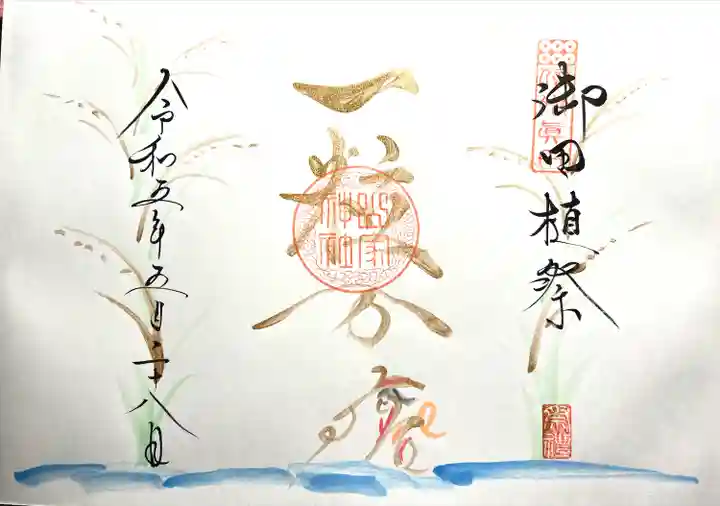 御田植祭
一粒万倍
山家神社
令和五年五月二十八日